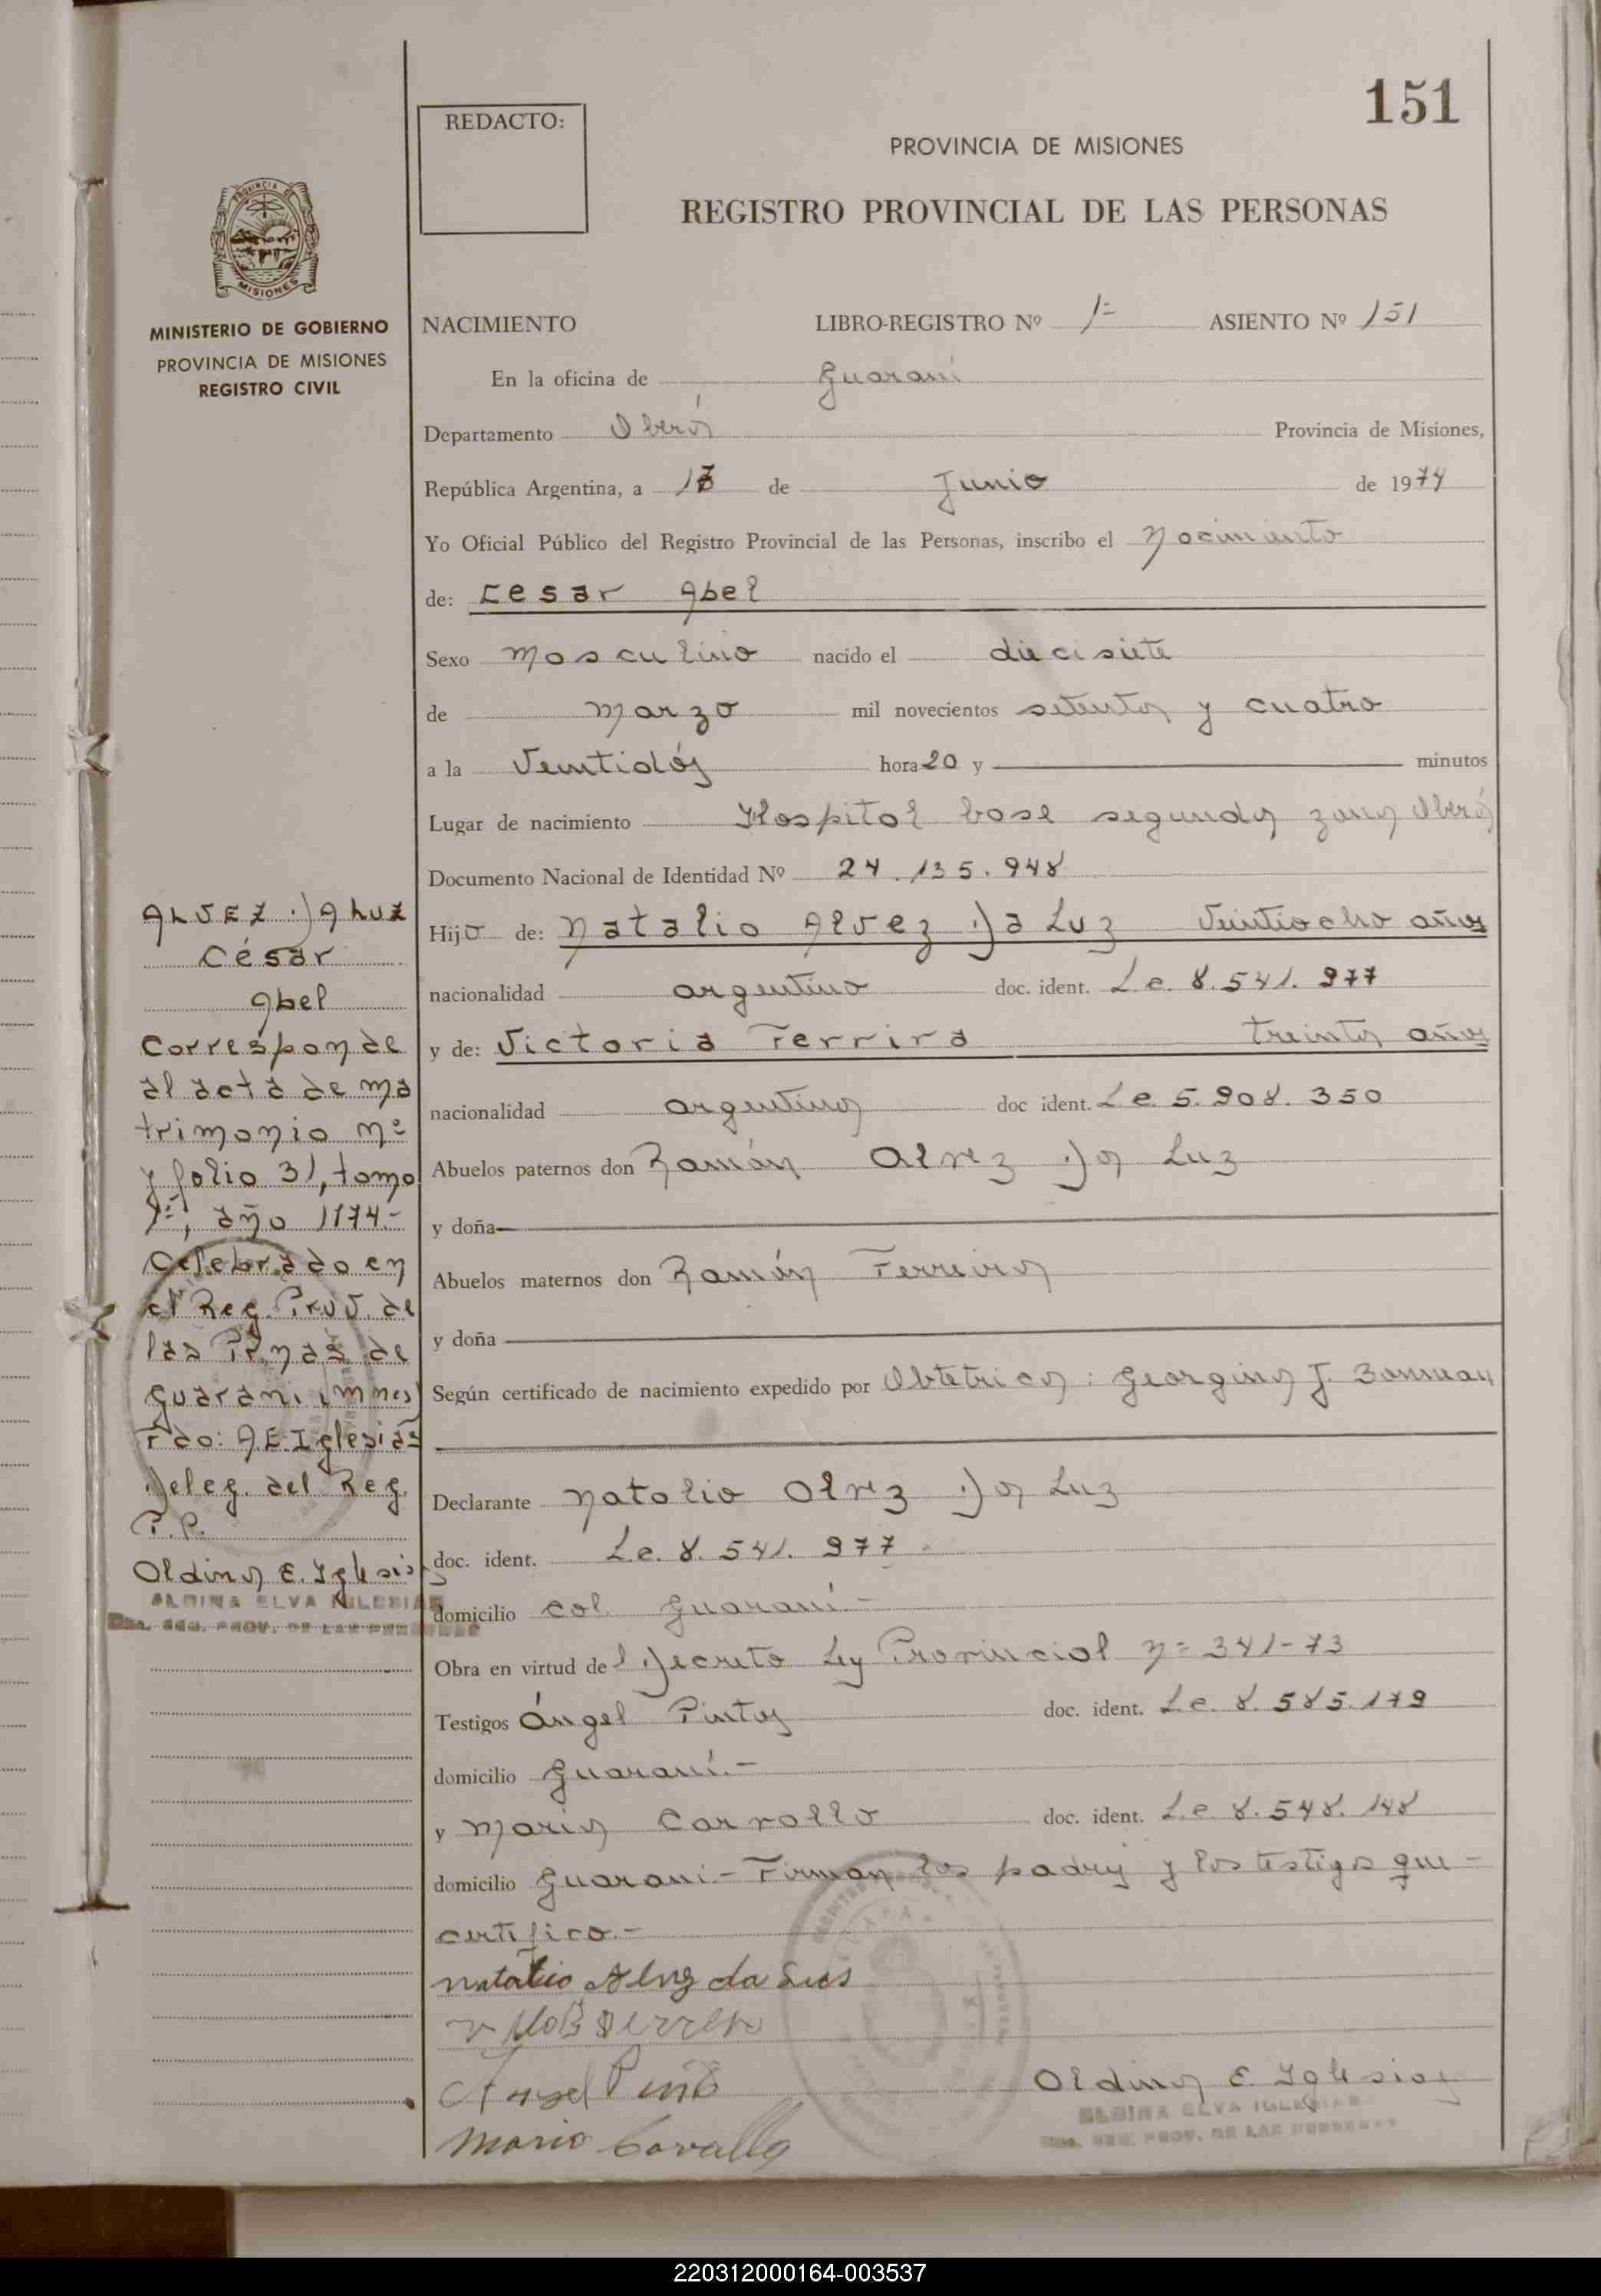 151
REDACTO:
PROVINCIA DE MISIONES
REGISTRO PROVINCIAL DE LAS PERSONAS
PROVINCIA DE
MISIONES
MINISTERIO DE GOBIERNO
PROVINCIA DE MISIONES
REGISTRO CIVIL
NACIMIENTO LIBRO-REGISTRO Nº 1º ASIENTO Nº 151
En la oficina de Guaraní
Departamento Oberá Provincia de Misiones,
República Argentina, a de Junio de 1974
Yo Oficial Público del Registro Provincial de las Personas, inscribo el Nacimiento
de: Cesar Abel
Sexo Masculino nacido el diecisiete
de Marzo mil novecientos setenta y cuatro
a la Veintidós hora 20 y minutos
Lugar de nacimiento Hospital base segunda zona Oberá
Documento Nacional de Identidad Nº 24.135.948
Hijo de: Natalio Alvez Da Luz Veintiocho años
nacionalidad argentino doc. ident. L.e. 8.541.977
y de: Victoria Ferrira treinta años
nacionalidad argentina doc ident. L.e. 5.908.350
Abuelos paternos don Ramón Alvez Da Luz
y doña
Abuelos maternos don Ramón Ferreira
y doña
Según certificado de nacimiento expedido por Obtetrica: Georgina J.
Declarante Natalio Alvez Da Luz
doc. ident. L.e. 8.541.977.
domicilio col. Guaraní-
Obra en virtud del Decreto Ley Provincial Nº 341-73
Testigos Ángel Pinto doc. ident. L.e. 8.585.179
domicilio Guaraní.-
y Mario Carvallo doc. ident. L.e. 8.548.148
domicilio Guaraní-Firman los padres y los testigos que-
certifico.-
natalio Alvez da Lus
Angel Pinto
Mario Carvallo
Aldina E. Iglesias
ALDINA ELVA IGLESIAS
REG. PROV. DE LAS PERSONAS
ALVEZ DA LUZ
César
Abel
Corresponde
al acta de ma
trimonio Nº
y folio 31, tomo
1º, año 1974.-
Celebrado en
el Reg. Prov. de
las Pernas de
Guaraní (mnes)
Fdo: A.E.Iglesias
Deleg. del Reg.
P.P.
Aldina E. Iglesias
ALDINA ELVA IGLESIAS
REG. PROV. DE LAS PERSONAS
220312000164-003537